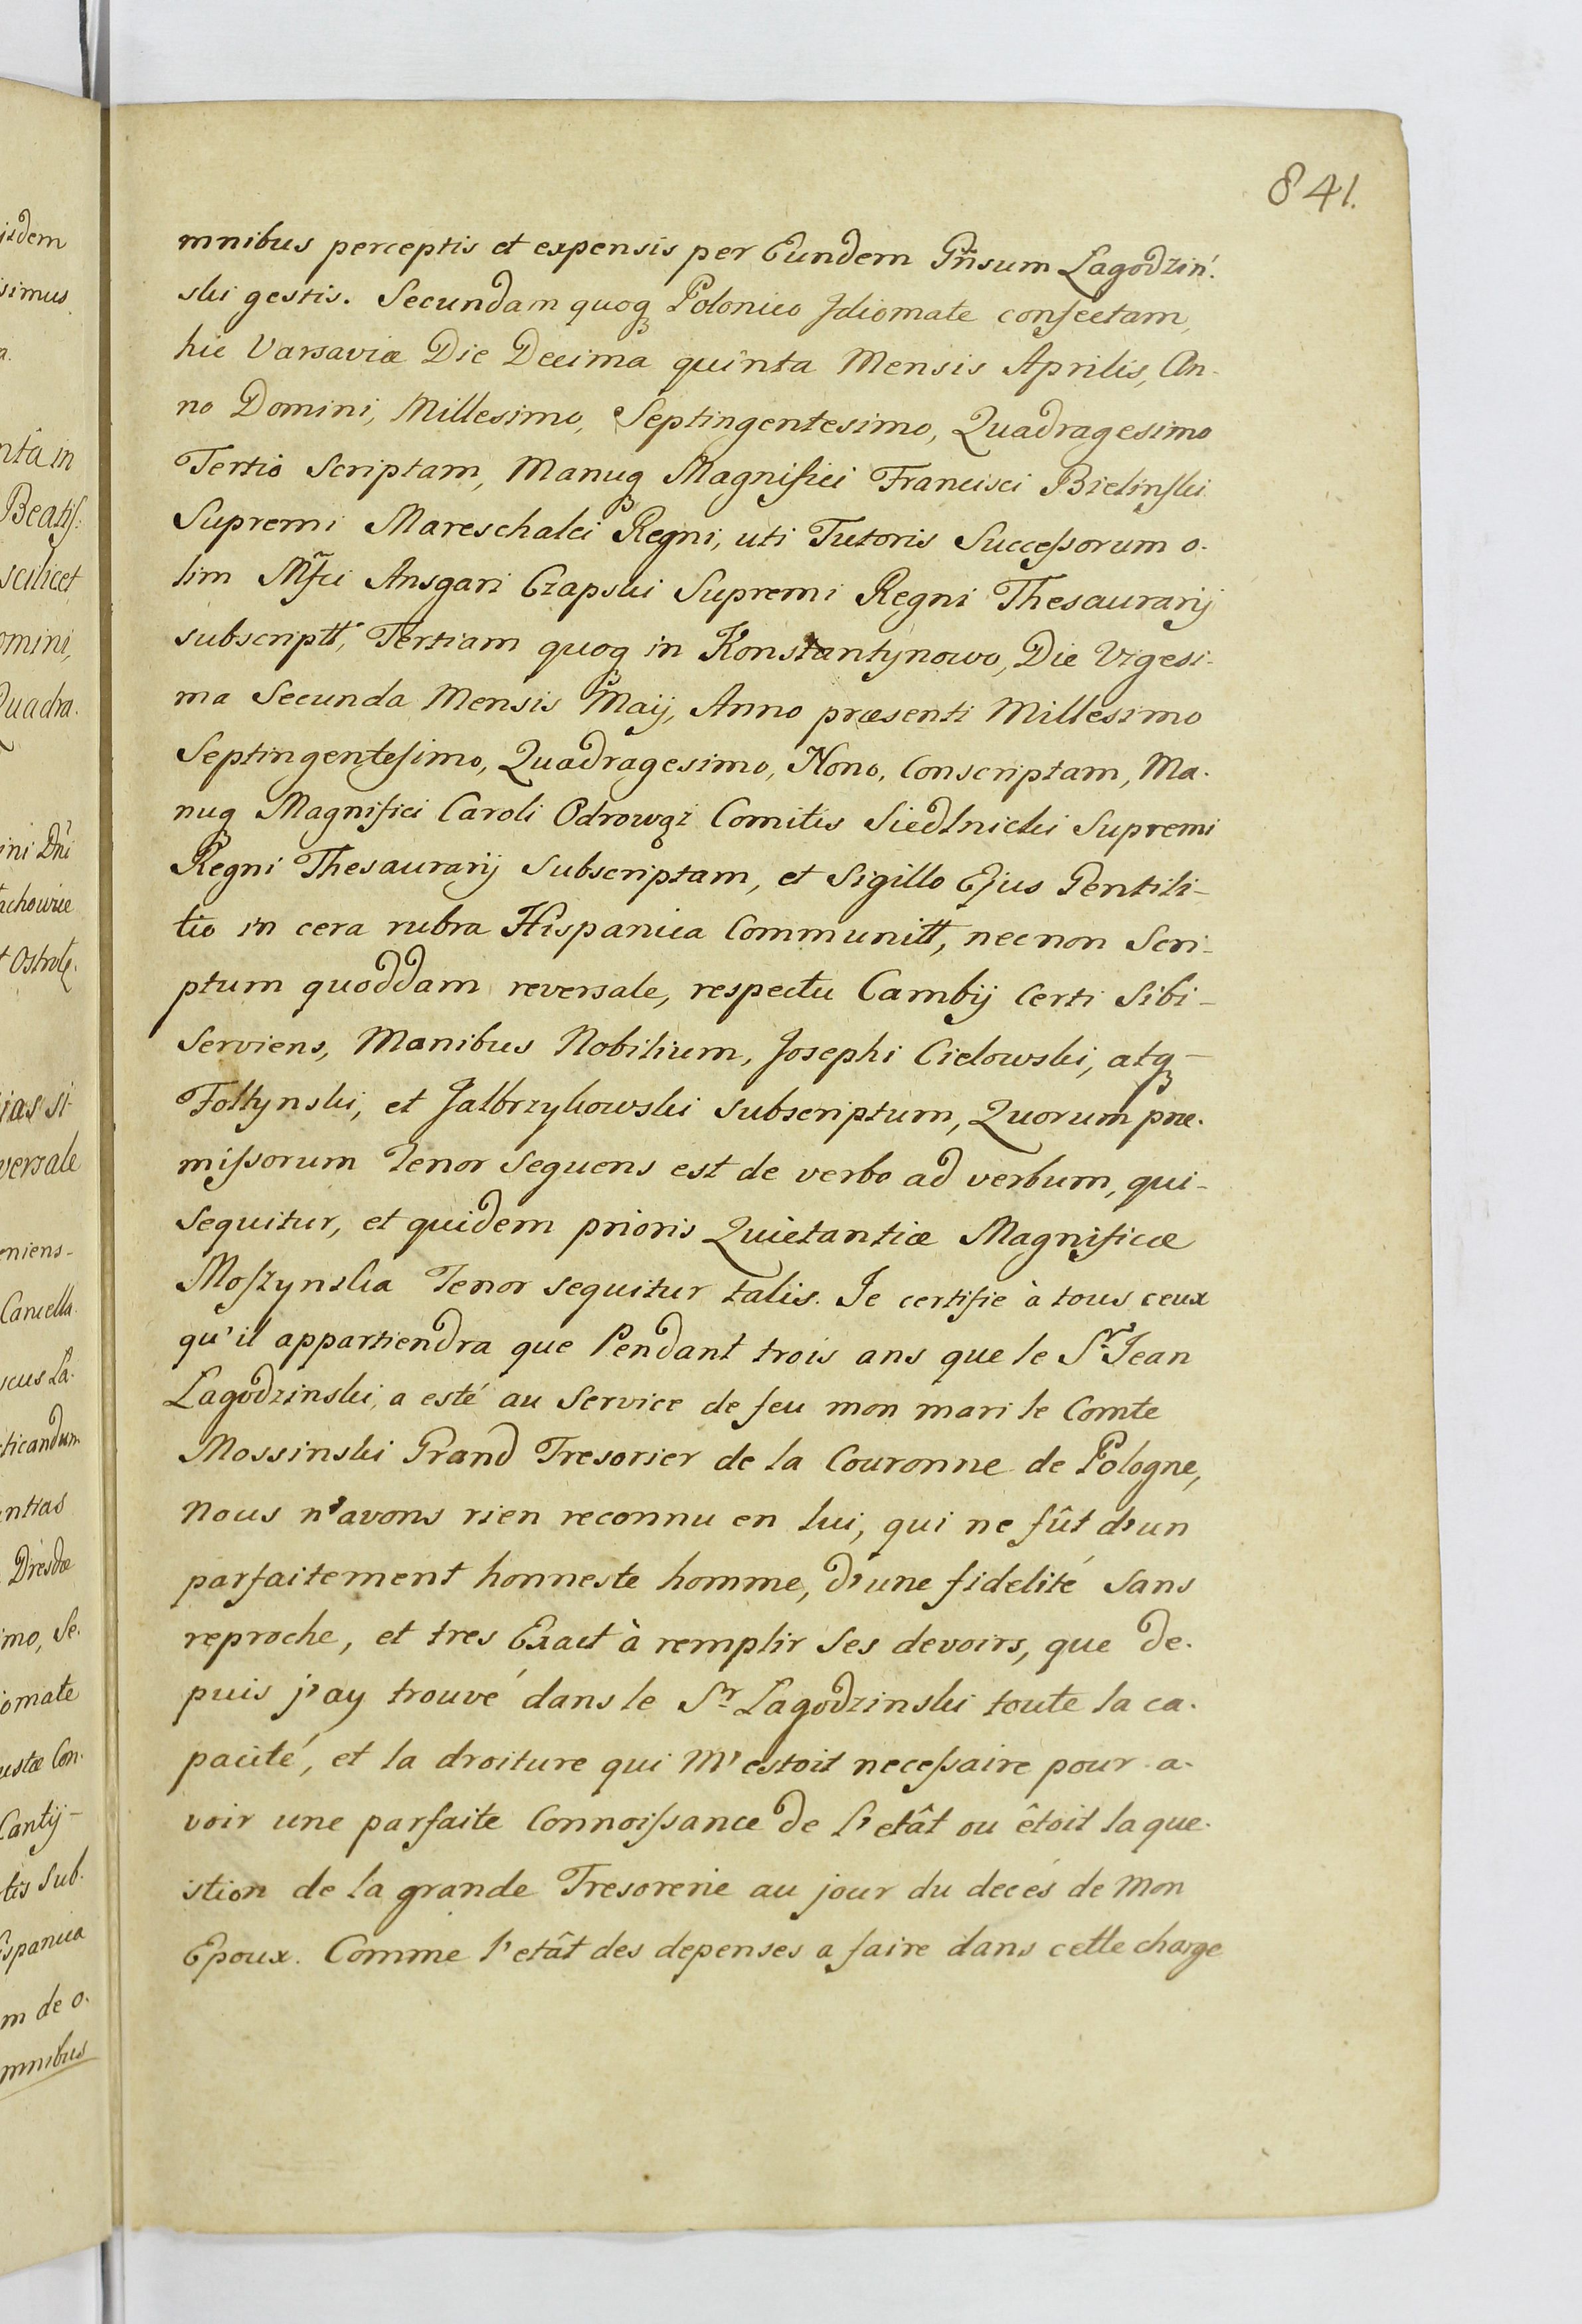 841.
mnibus perceptis et expensis per Eundem Gñsum Lagodzin-
ski gestis. Secundam quoq Polonico Idiomate confectam,
hic Varsaviæ Die Decima quinta Mensis Aprilis, An-
no Domini, Millesimo, Septingentesimo, Quadragesimo
Tertio Scriptam, Manuq Magnifici Francisci Bielinski
Supremi Mareschalci Regni, uti Tutoris Successorum o-
lim Mfci Ansgari Czapski Supremi Regni Thesaurarij
subscriptt, Tertiam quoq in Konstantynowo, Die Vigesi-
ma Secunda Mensis Maij, Anno præsenti Millesimo
Septingentesimo, Quadragesimo, Nono, Conscriptam, Ma-
nuq Magnifici Caroli Odrowąz Comitis Siedlnicki Supremi
Regni Thesaurarij Subscriptam, et Sigillo Ejus Gentili-
tio in cera rubra Hispanica Communitt, necnon Scri-
ptum quoddam reversale, respectu Cambij Certi Sibi-
Serviens, Manibus Nobilium, Josephi Cielowski, atq-
Foltynski, et Jalbrzykowski subscriptum, Quorum præ-
missorum Tenor Sequens est de verbo ad verbum, qui-
Sequitur, et quidem prioris Quietantiæ Magnificæ
Moszynska Tenor sequitur talis. Je certifie à tous ceux
qu'il appartiendra que Pendant trois ans que le Sr Jean
Lagodzinski, a esté au Service de feu mon mari le Comte
Mossinski Grand Tresorier de la Couronne de Pologne,
Nous n'avons rien reconnu en lui, qui ne fût d'un
parfaitement honneste homme, d'une fidelité Sans
reproche, et tres Exact à remplir Ses devoirs, que de-
puis j'ay trouvé dans le Sr Lagodzinski toute la ca-
pacité, et la droiture qui M'estoit necessaire pour a-
voir une parfaite Connoissance de l'etât ou êtoit la que-
stion de la grande Tresorerie au jour du decés de Mon
Epoux. Comme l'etât des depenses a faire dans cette charge